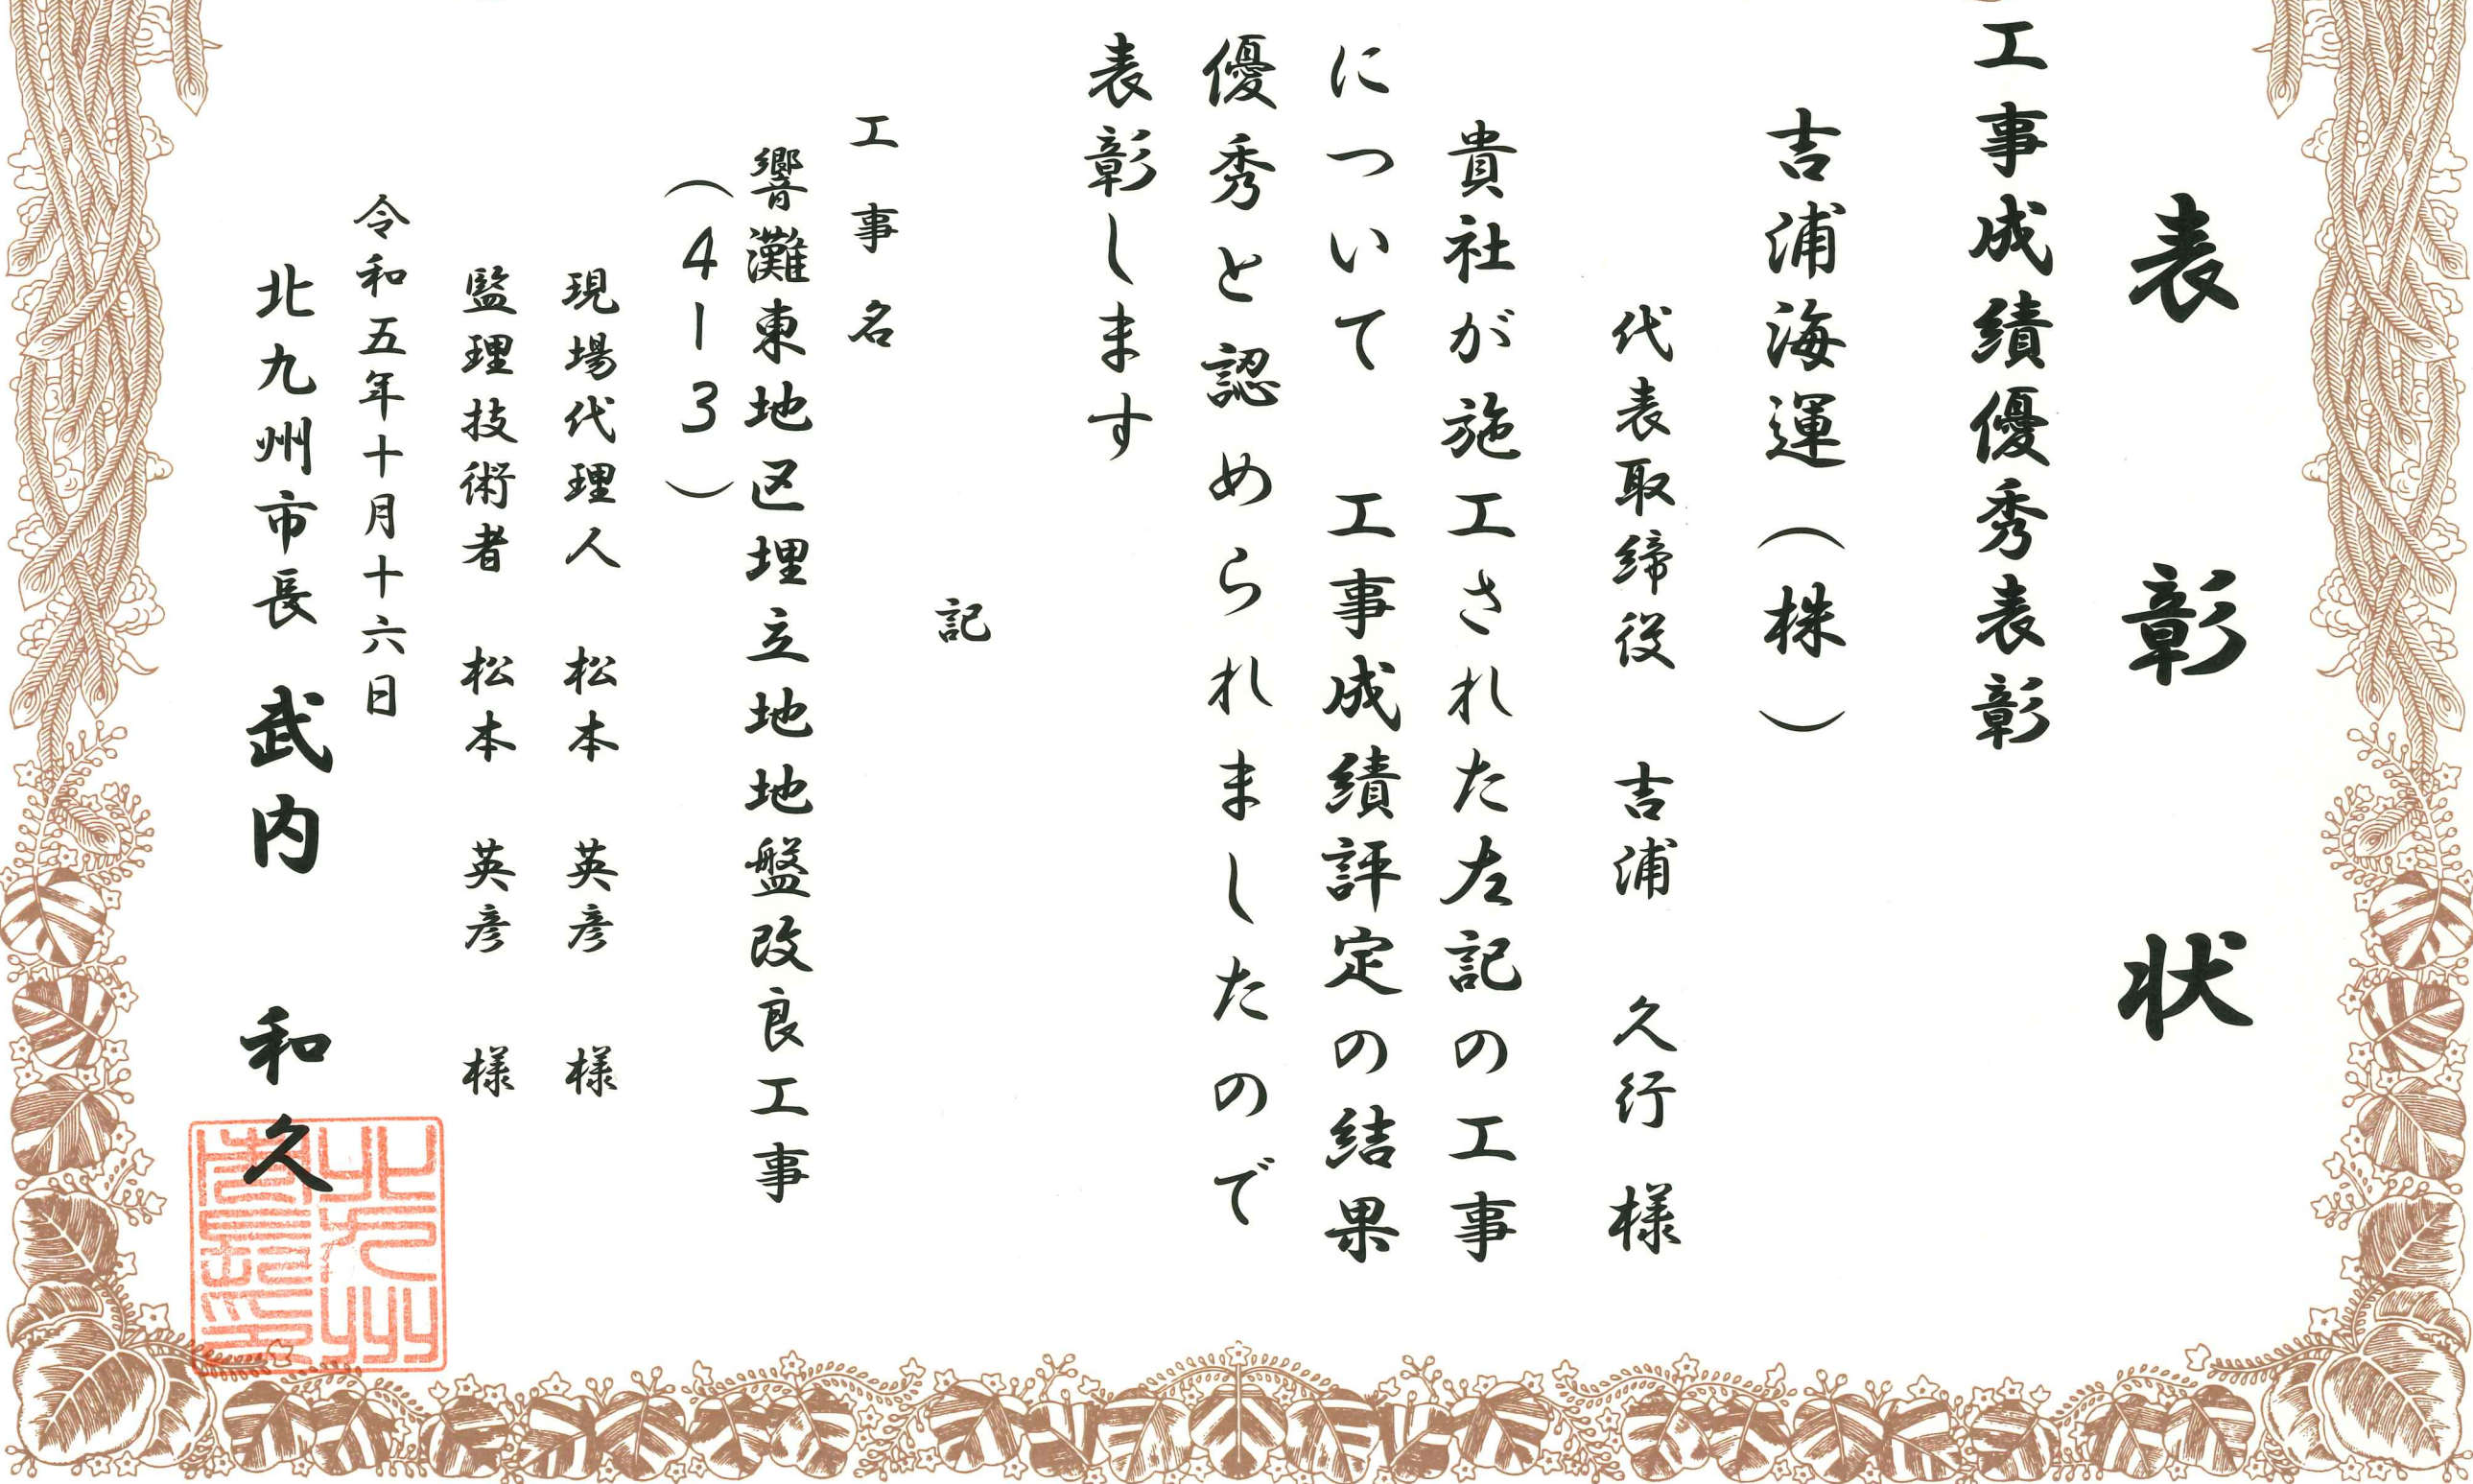 表彰状
工事成績優秀表彰
吉浦海運（株）
代表取締役　吉浦　久行　様
貴社が施工された左記の工事
について　工事成績評定の結果
優秀と認められましたので
表彰します
記
工事名
響灘東地区埋立地地盤改良工事
（4－3）
現場代理人　松本　英彦　様
監理技術者　松本　英彦　様
令和五年十月十六日
北九州市長　武内　和久
北九州
市長印